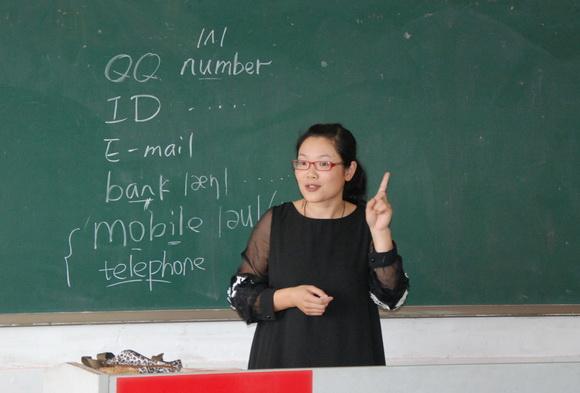 /ʌ/
QQ number
ID .....
E-mail
bank /æŋ/ .....
mobile /əu/
telephone